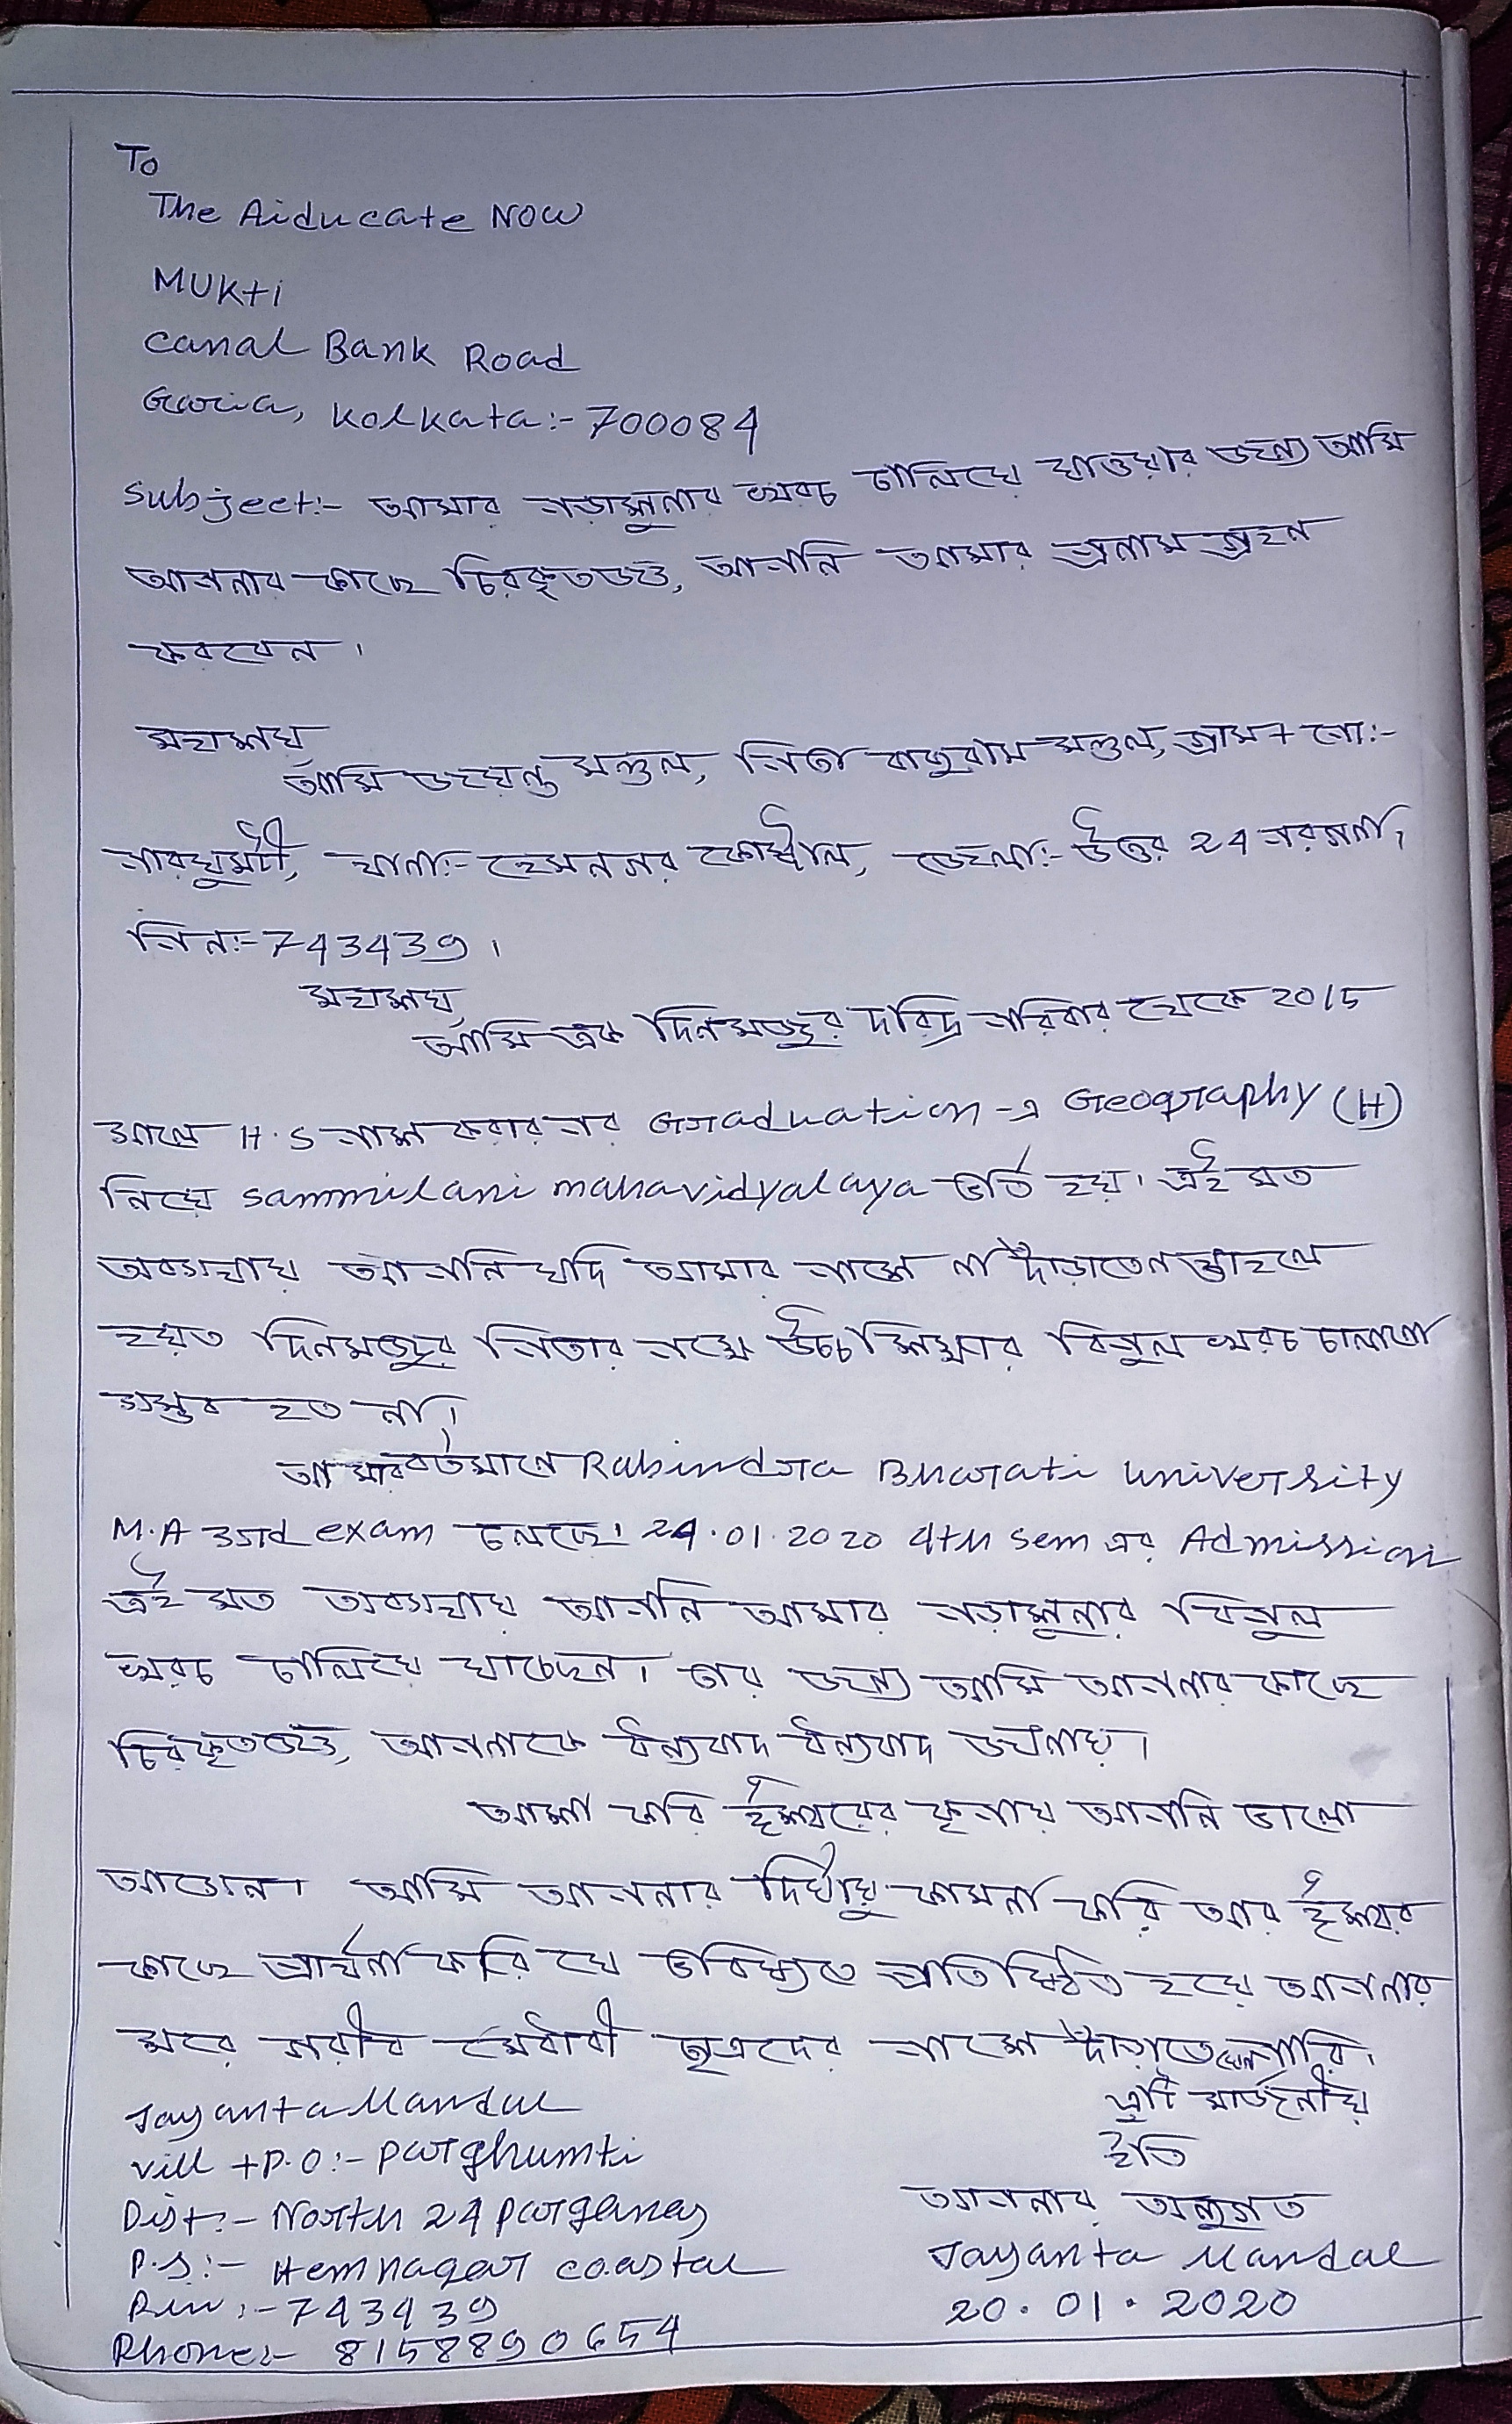 To
The Aiducate Now
Mukti
Canal Bank Road
Garia, Kolkata:- 700084
Subject:- আমার পড়াশুনার খরচ চালিয়ে যাওয়ার জন্য আমি
আপনার কাছে চিরকৃতজ্ঞ, আপনি আমার প্রনাম গ্রহন
করবেন।
মহাশয়
আমি জয়ন্ত মণ্ডল, পিতা বাবুরাম মণ্ডল, গ্রাম + পো:-
পারঘুমটী, থানা:- হেমনগর কোষ্টাল, জেলা:- উত্তর 24 পরগনা।
পিন:- 743439।
মহাশয়,
আমি এক দিনমজুর দরিদ্র পরিবার থেকে 2015
সালে H.S পাশ করার পর Graduation-এ Geography (H)
নিয়ে Sammilani mahavidyalaya ভর্তি হয়। এই মত
অবস্থায় আপনি যদি আমার পাশে না দাঁড়াতেন তাহলে
হয়ত দিনমজুর পিতার পক্ষে উচ্চশিক্ষার বিপুল খরচ চালানো
সম্ভব হত না।
আমার বর্তমানে Rabindra Bharati University
M.A 3rd exam চলছে। 24.01.2020 4th sem এর Admission
এই মত অবস্থায় আপনি আমার পড়াশুনার বিপুল
খরচ চালিয়ে যাচ্ছেন। তার জন্য আমি আপনার কাছে
চিরকৃতজ্ঞ, আপনাকে ধন্যবাদ ধন্যবাদ জানায়।
আশা করি ঈশ্বরের কৃপায় আপনি ভালো
আছেন। আমি আপনার দির্ঘায়ু কামনা করি আর ঈশ্বর
কাছে প্রার্থনা করি যে ভবিষ্যতে প্রতিষ্ঠিত হয়ে আপনার
মতে গরীব মেধাবী ছাত্রদের পাশে দাঁড়াতে যেন পারি।
Jayanta Mandal
vill + P.O:- Parghumti
Dist:- North 24 Parganas
P.S:- Hemnagar coastal
Pin:- 743439
Phone:- 8158890654
ত্রুটি মার্জনীয়
ইতি
আপনার অনুগত
Jayanta Mandal
20.01.2020